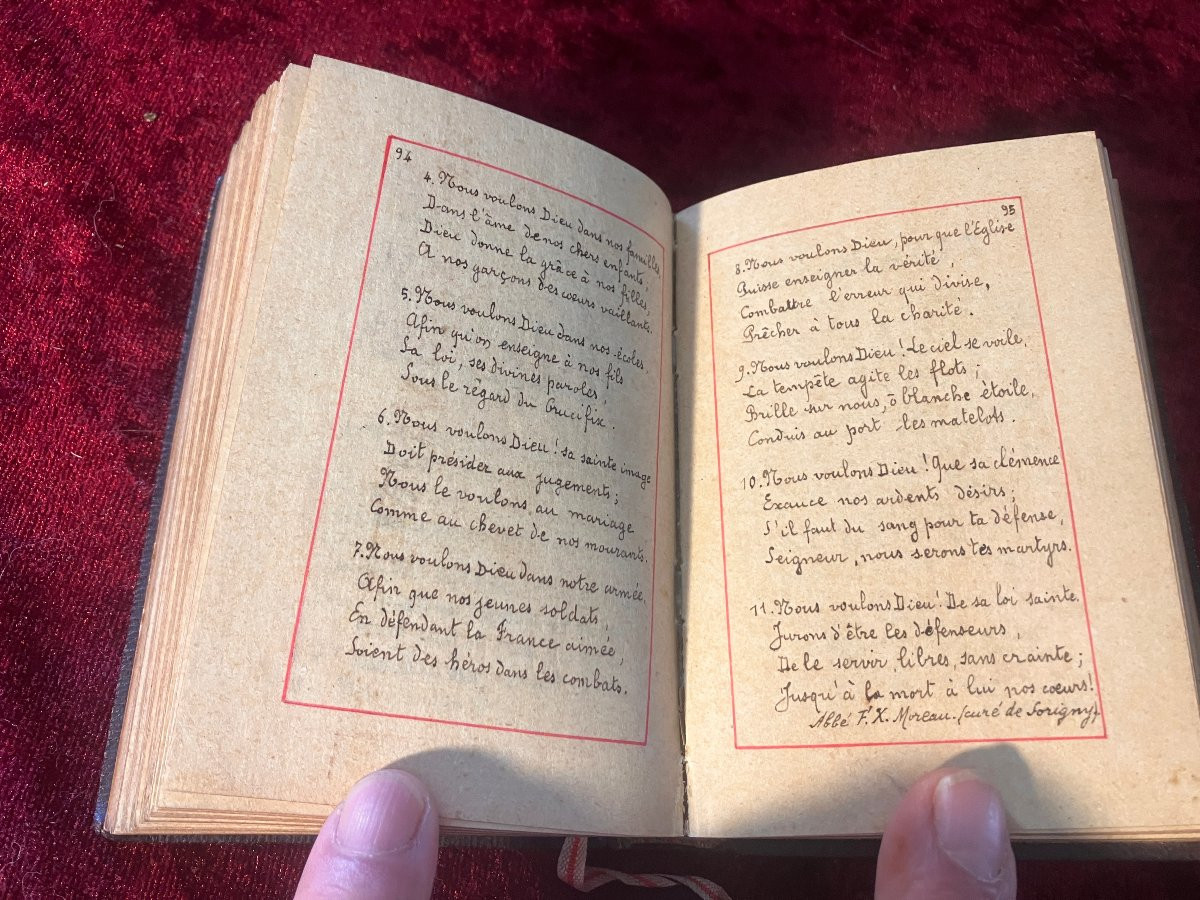 94
4. Nous voulons Dieu dans nos familles,
Dans l'âme de nos chers enfants;
Dieu donne la grâce à nos filles,
A nos garçons des cœurs vaillants.
5. Nous voulons Dieu dans nos écoles,
Afin qu'on enseigne à nos fils
Sa loi, ses divines paroles,
Sous le régard du Crucifix.
6. Nous voulons Dieu! sa sainte image
Doit présider aux jugements;
Nous le voulons au mariage
Comme au chevet de nos mourants.
7. Nous voulons Dieu dans notre armée,
Afin que nos jeunes soldats,
En défendant la France aimée,
Soient des héros dans les combats.
95
8. Nous voulons Dieu, pour que l'Eglise
Puisse enseigner la vérité,
Combattre l'erreur qui divise,
Prêcher à tous la charité.
9. Nous voulons Dieu! Le ciel se voile,
La tempête agite les flots;
Brille sur nous, ô blanche étoile,
Conduis au port les matelots.
10. Nous voulons Dieu! Que sa clémence
Exauce nos ardents désirs;
S'il faut du sang pour ta défense,
Seigneur, nous serons tes martyrs.
11. Nous voulons Dieu! De sa loi sainte,
Jurons d'être les défenseurs,
De le servir, libres, sans crainte;
Jusqu'à la mort à lui nos cœurs!
Abbé F.X. Moreau. (curé de Sorigny)